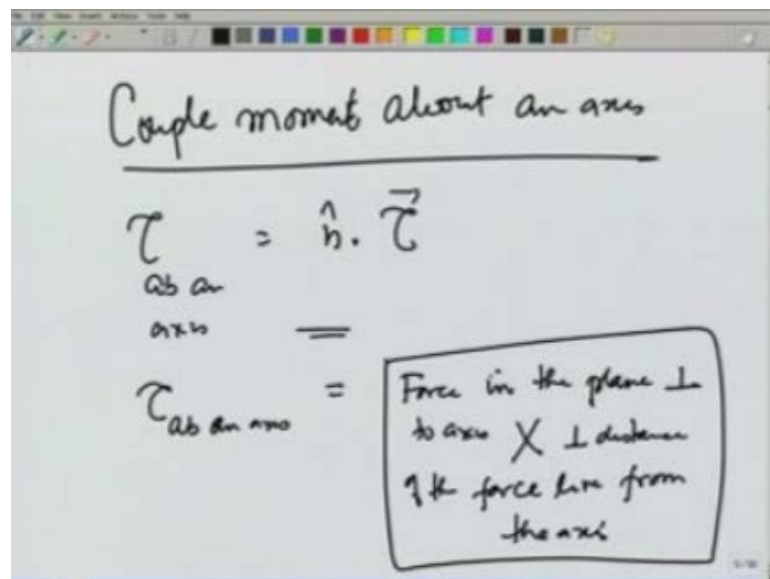 Couple moment about an axis
τ = n̂. τ⃗
ab an
axis
τ ab an axis =
Force in the plane ⊥
to axis X ⊥ distance
of the force line from
the axis